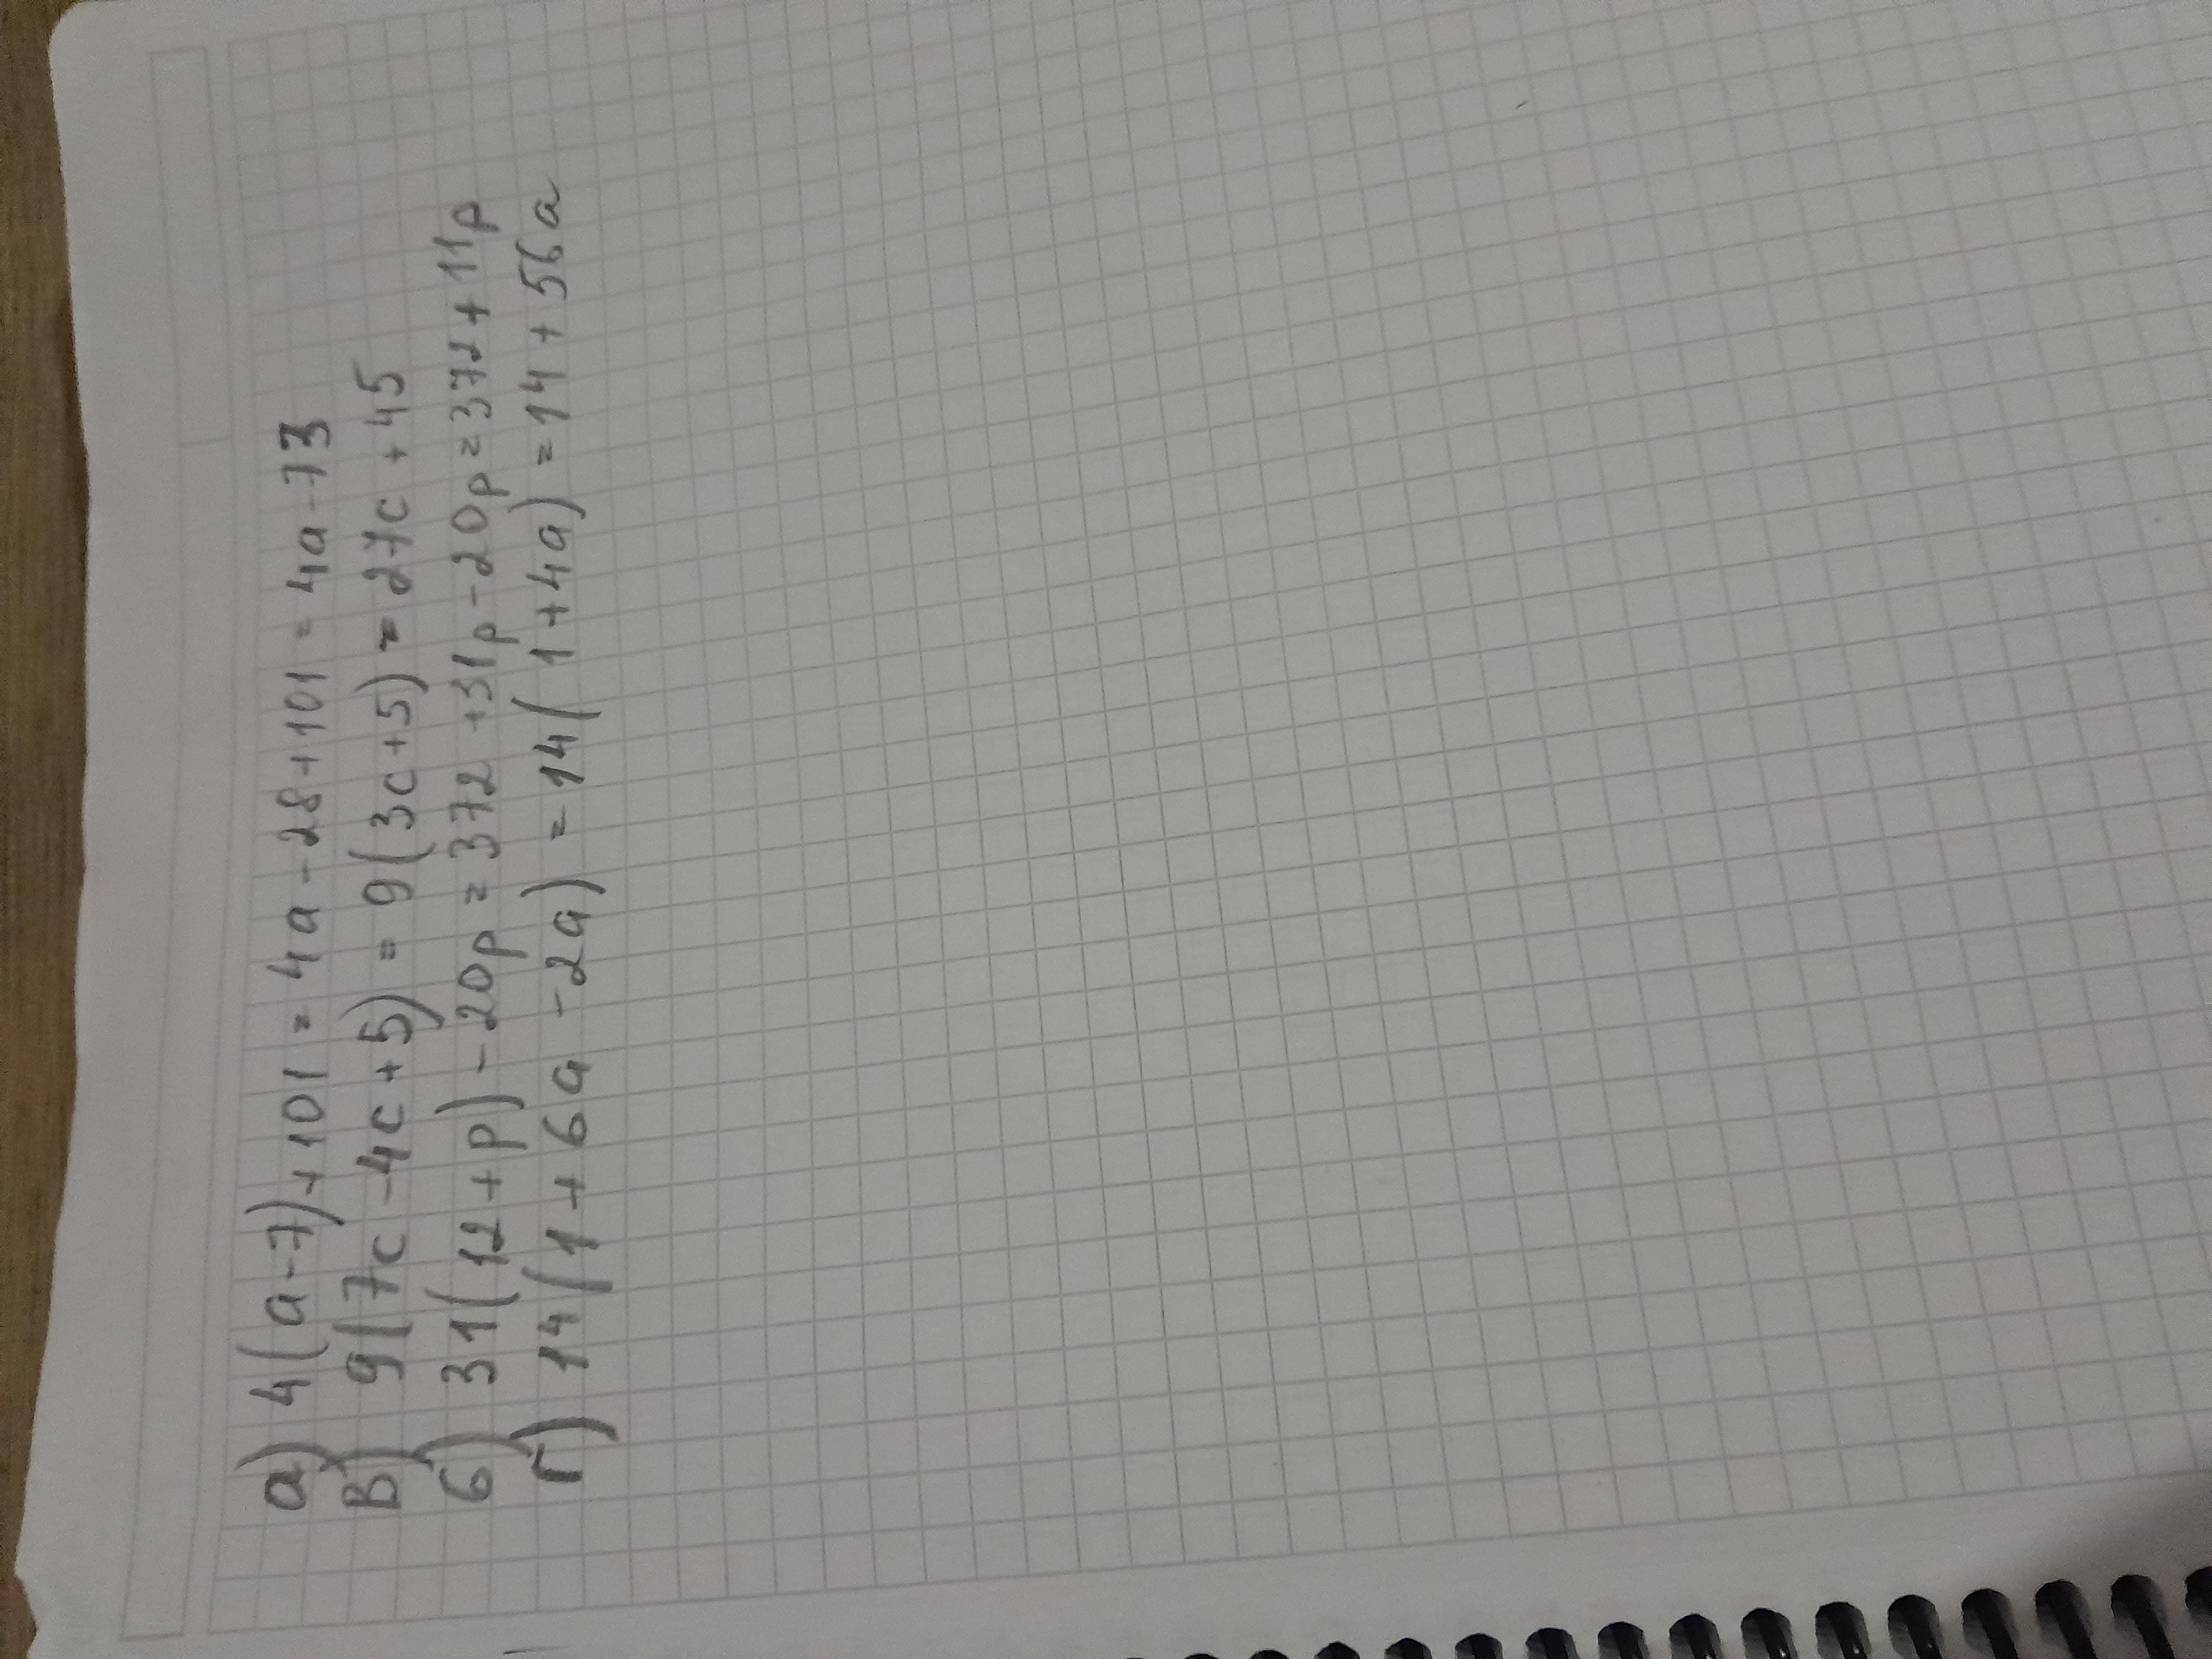 а) 4(a-7)+101 = 4a-28+101 = 4a-73
в) 9(7c-4c+5) = 9(3c+5) = 27c+45
б) 31(12+p)-20p = 372+31p-20p = 372+11p
г) 14(1+6a-2a) = 14(1+4a) = 14+56a